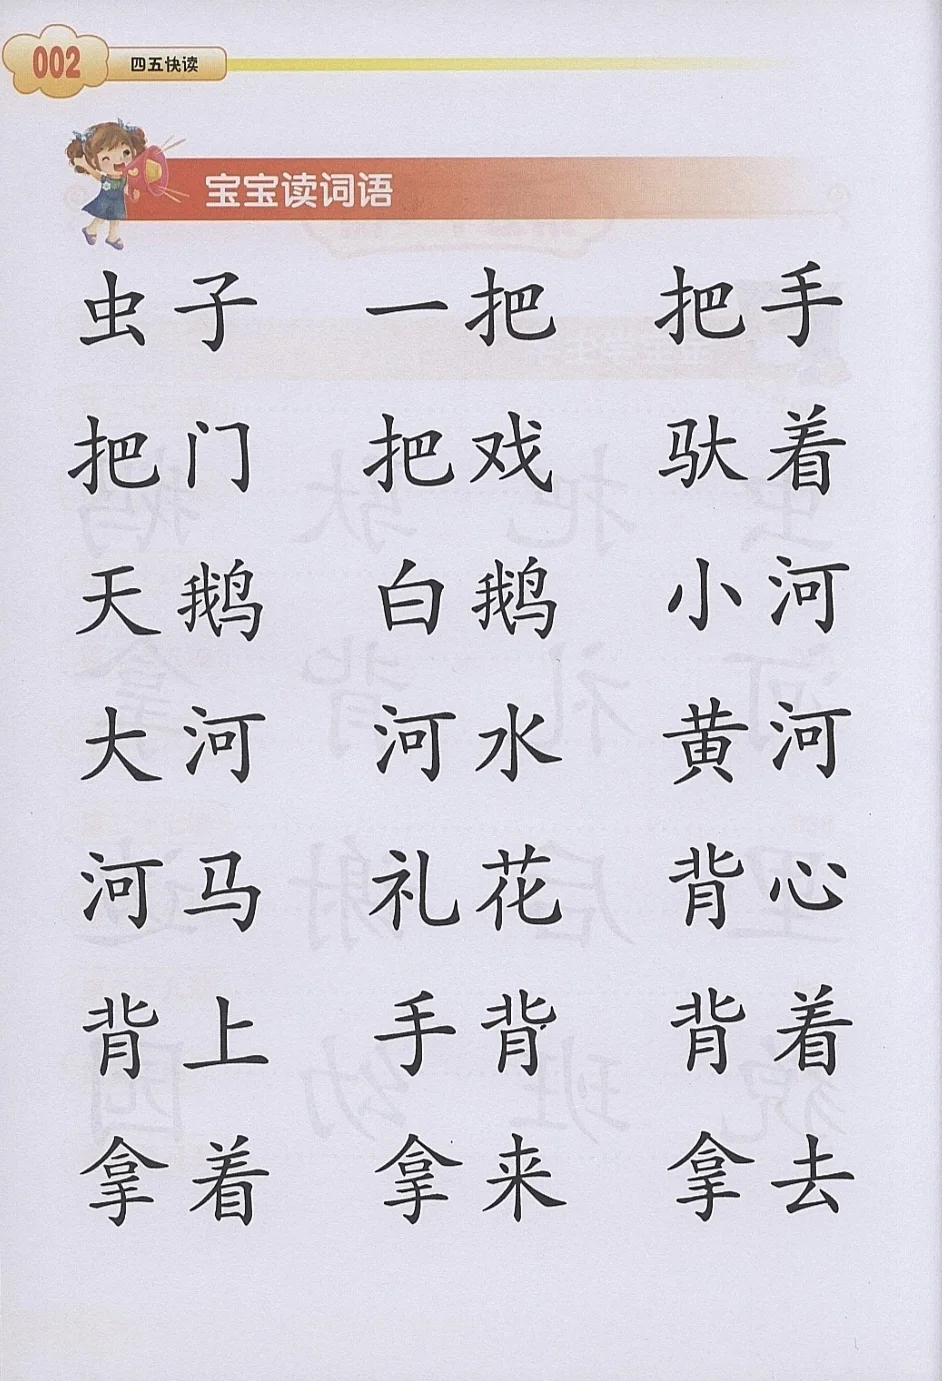 002 四五快读
宝宝读词语
虫子 一把 把手
把门 把戏 驮着
天鹅 白鹅 小河
大河 河水 黄河
河马 礼花 背心
背上 手背 背着
拿着 拿来 拿去